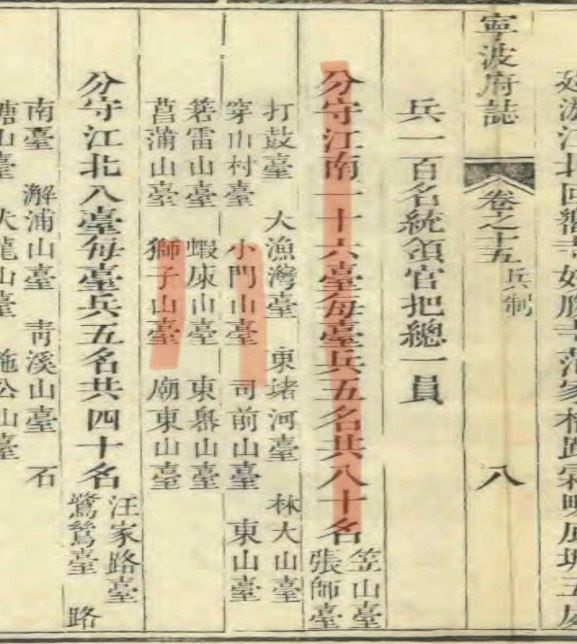 江北回嚮寺妙勝寺范家橋
寧波府誌 卷之十五 兵制 八
兵一百名統領官把總一員
分守江南一十六臺每臺兵五名共八十名 笠山臺
張師臺
打鼓臺 大漁灣臺 東堵河臺 林大山臺
穿山村臺 小門山臺 司前山臺 東山臺
箬雷山臺 蝦康山臺 東嶴山臺
菖蒲山臺 獅子山臺 廟東山臺
分守江北八臺每臺兵五名共四十名 汪家路臺
鷺鷥臺 路
南臺 澥浦山臺 靑溪山臺 石
塘山臺 大龍山臺 施公山臺